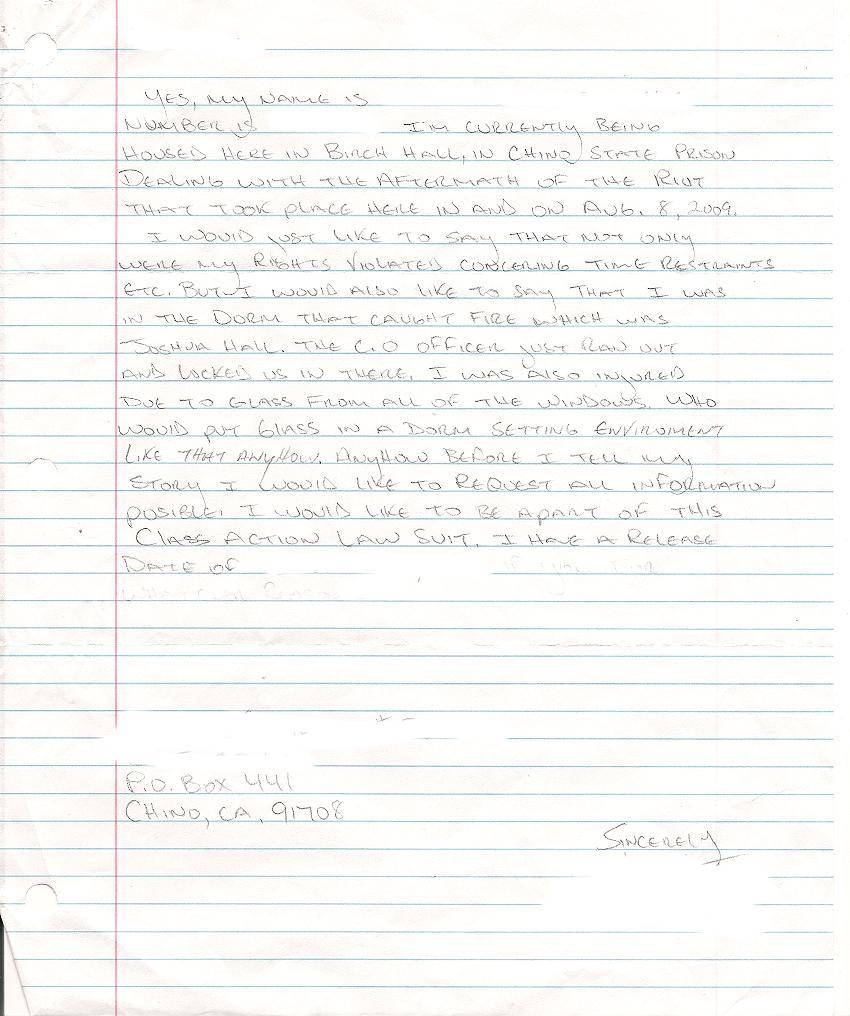 YES, MY NAME IS
NUMBER IS I'M CURRENTLY BEING
HOUSED HERE IN BIRCH HALL, IN CHINO STATE PRISON
DEALING WITH THE AFTERMATH OF THE RIOT
THAT TOOK PLACE HERE IN AND ON AUG. 8, 2009.
I WOULD JUST LIKE TO SAY THAT NOT ONLY
WERE MY RIGHTS VIOLATED CONCERING TIME RESTRAINTS
ETC. BUT I WOULD ALSO LIKE TO SAY THAT I WAS
IN THE DORM THAT CAUGHT FIRE WHICH WAS
JOSHUA HALL. THE C.O OFFICER JUST RAN OUT
AND LOCKED US IN THERE. I WAS ALSO INJURED
DUE TO GLASS FROM ALL OF THE WINDOWS. WHO
WOULD PUT GLASS IN A DORM SETTING ENVIRMENT
LIKE THAT ANYHOW. ANYHOW BEFORE I TELL MY
STORY I WOULD LIKE TO REQUEST ALL INFORMATION
POSIBLE. I WOULD LIKE TO BE APART OF THIS
CLASS ACTION LAW SUIT. I HAVE A RELEASE
DATE OF If you
P.O. BOX 441
CHINO, CA. 91708
SINCERELY